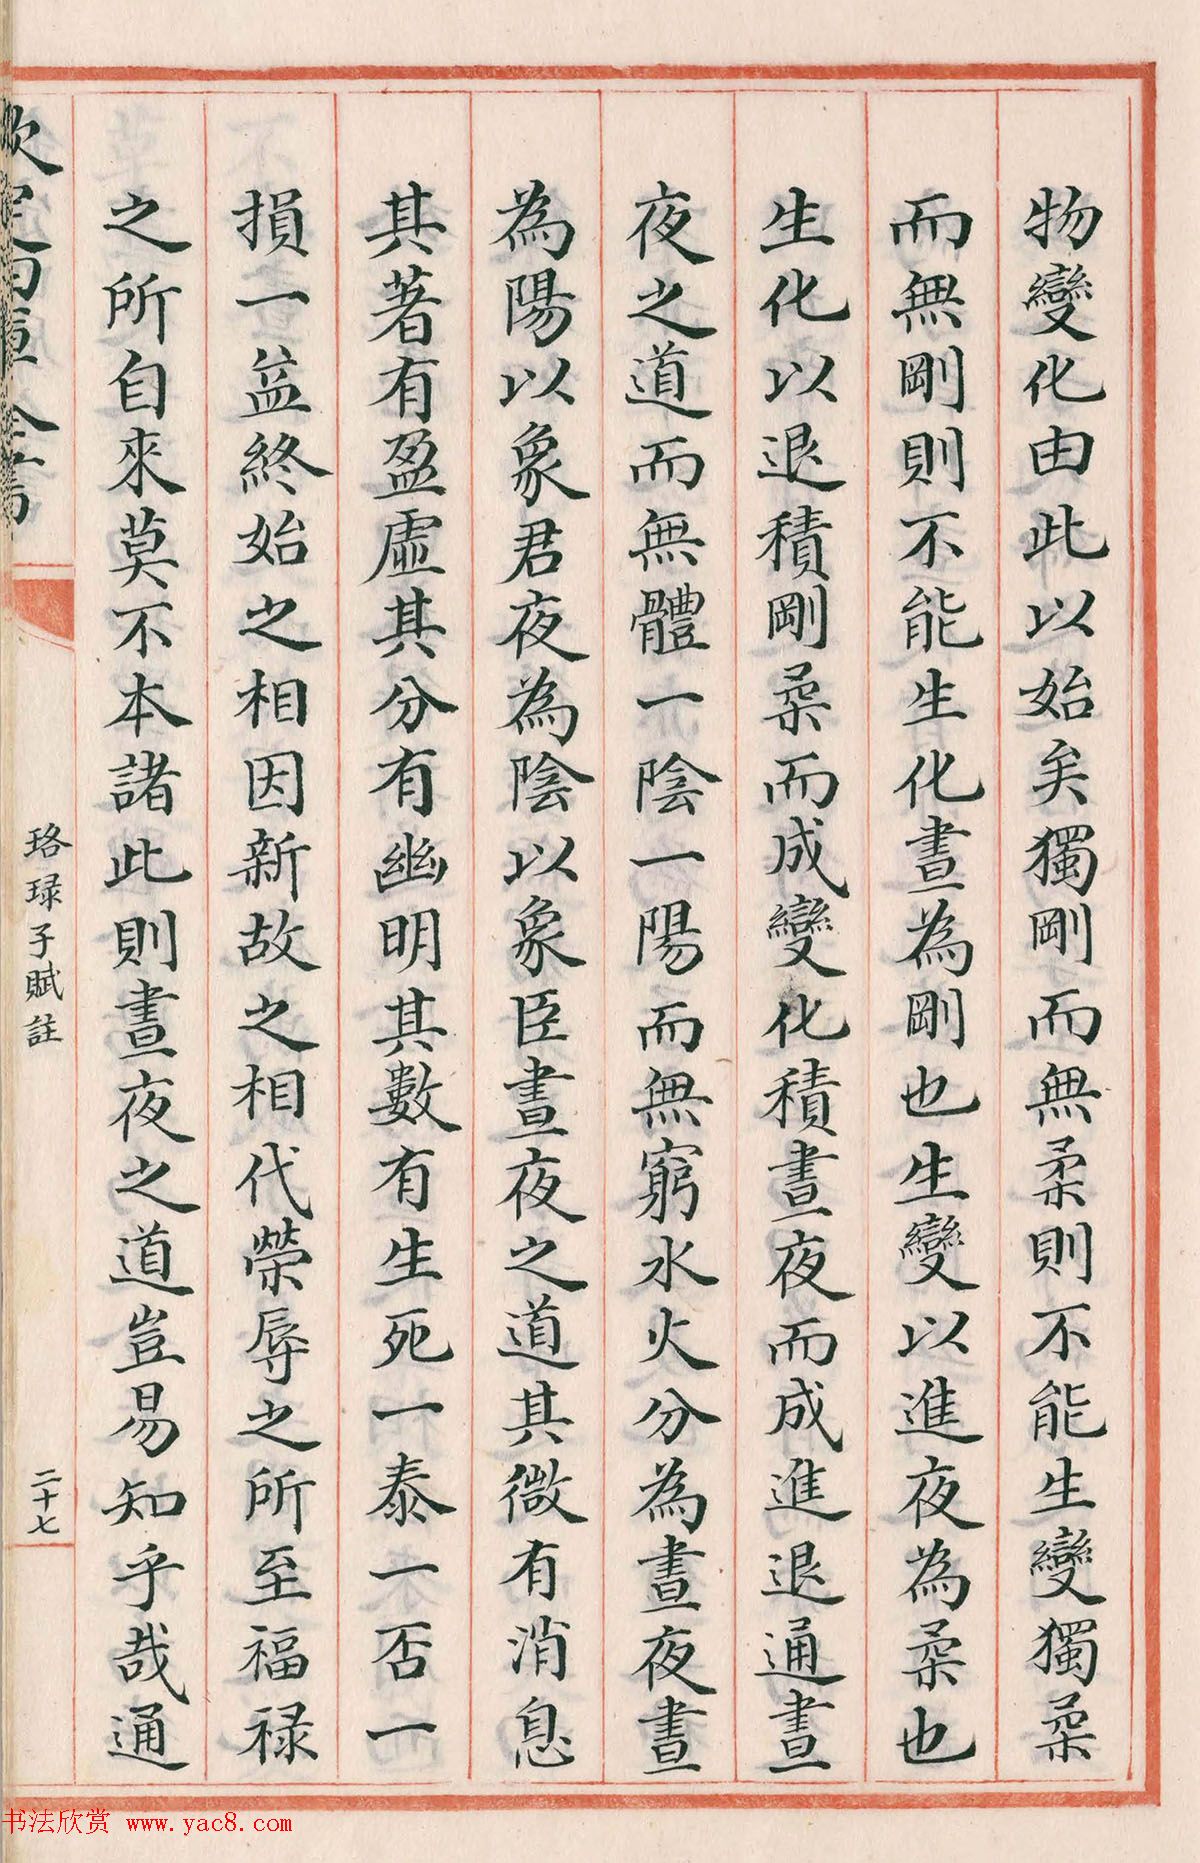 物變化由此以始矣獨剛而無柔則不能生變獨柔
而無剛則不能生化晝為剛也生變以進夜為柔也
生化以退積剛柔而成變化積晝夜而成進退通晝
夜之道而無體一陰一陽而無窮水火分為晝夜晝
為陽以象君夜為陰以象臣晝夜之道其微有消息
其著有盈虛其分有幽明其數有生死一泰一否一
損一益終始之相因新故之相代榮辱之所至福祿
之所自來莫不本諸此則晝夜之道豈易知乎哉通
欽定四庫全書
珞琭子賦註
二十七
书法欣赏 www.yac8.com